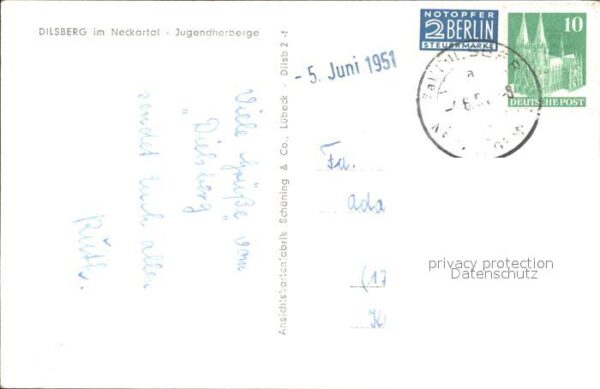 DILSBERG im Neckartal - Jugendherberge
NOTOPFER
2 BERLIN
STEUERMARKE
10
DEUTSCHE POST
- 5. Juni 1951
a
Viele Grüße vom
"Dielsberg"
sendet Euch allen
Ruth.
Ansichtskartenfabrik Schöning & Co., Lübeck · Dilsb 2 -f
Fa.
ada
(17
K
privacy protection
Datenschutz